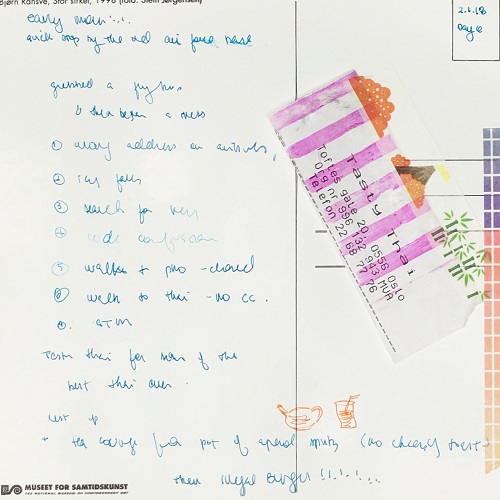 Bjørn Ransve, Stor sirkel, 1998 (foto: Stein Jørgensen)
2.6.18
Day 6
early morn
quick stop by the old air force base
grabbed a flybus
then began a mess
① wrong address on airbnb,
②
③ search for key
④ code confusion
⑤ walked to pho - closed
⑥ walk to thai - no cc.
⑦. ATM
Tasty thai for some of the
best thai ever.
next up
tea lounge for a pot of (no cheesy toast
then illegal burger !!!!...
Tasty Thai
Toftes gate 20, 0556 Oslo
Org nr 996 132 943 MVA
Telefon 22 68 77 76
MUSEET FOR SAMTIDSKUNST
THE NATIONAL MUSEUM OF CONTEMPORARY ART